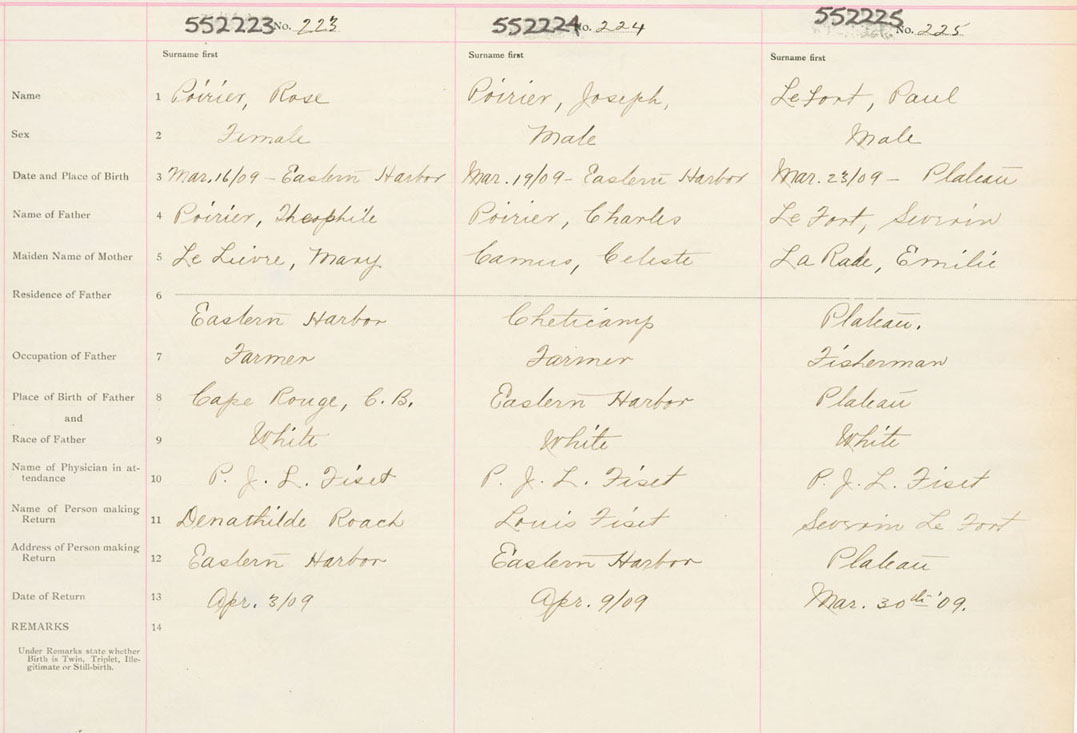 552223 No. 223 552224 No. 224 552225 No. 225
Surname first Surname first Surname first
Name 1 Poirier, Rose Poirier, Joseph, LeFort, Paul
Sex 2 Female Male Male
Date and Place of Birth 3 Mar. 16/09 - Eastern Harbor Mar. 19/09 - Eastern Harbor Mar. 23/09 - Plateau
Name of Father 4 Poirier, Theophile Poirier, Charles Le Fort, Severin
Maiden Name of Mother 5 Le Lievre, Mary Camus, Celeste La Rade, Emilie
Residence of Father 6
Eastern Harbor Cheticamp Plateau.
Occupation of Father 7 Farmer Farmer Fisherman
Place of Birth of Father 8 Cape Rouge, C.B. Eastern Harbor Plateau
and
Race of Father 9 White White White
Name of Physician in at-
tendance 10 P. J. L. Fiset P. J. L. Fiset P. J. L. Fiset
Name of Person making
Return 11 Denathilde Roach Louis Fiset Severin Le Fort
Address of Person making
Return 12 Eastern Harbor Eastern Harbor Plateau
Date of Return 13 Apr. 3/09 Apr. 9/09 Mar. 30th '09.
REMARKS 14
Under Remarks state whether
Birth is Twin, Triplet, Ille-
gitimate or Still-birth.